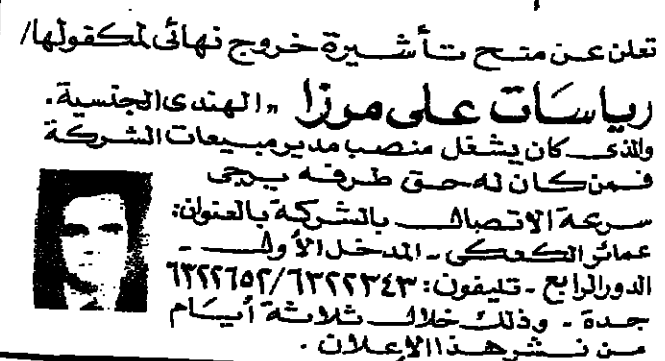 تعلن عن منح تأشيرة خروج نهائى لمكفولها/
رياسات على مرزا "الهندى الجنسية.
والذى كان يشغل منصب مدير مبيعات الشركة
فمن كان له حق طرفه يرجى
سرعة الاتصال بالشركة بالعنوان:
عمائر الكعكى - المدخل الأول -
الدور الرابع - تليفون: ٦٣٢٢٣٤٣/٦٣٢٢٦٥٢
جدة - وذلك خلال ثلاثة أيام
من نشر هذا الإعلان.